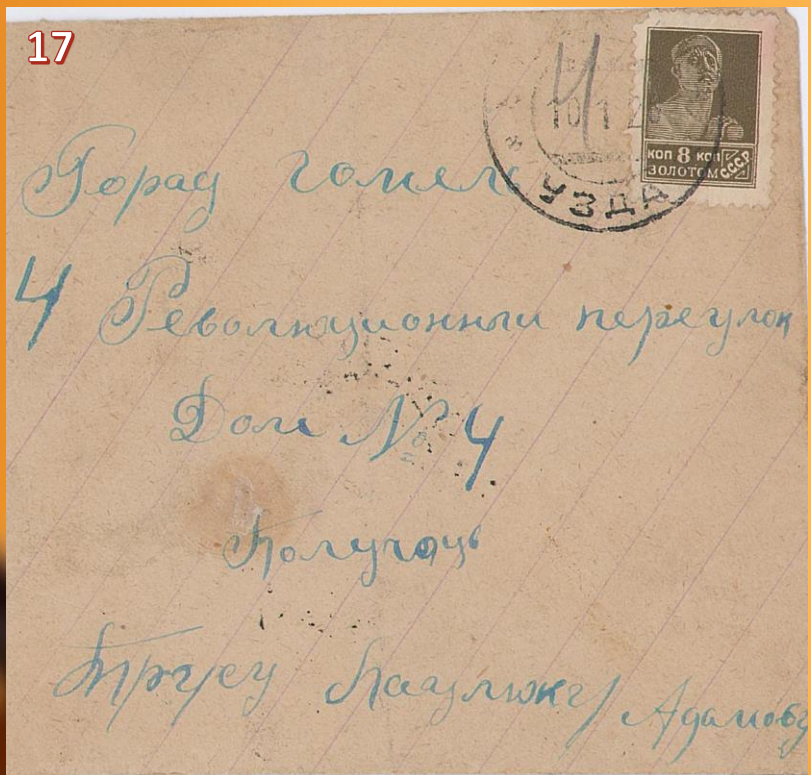 17
10 1 2
УЗДА
КОП 8 КОП
ЗОЛОТОМ СССР
Горад гомель
4 Революционный переулок
Дом № 4
Получоць
Трусу Паулюку Адамову